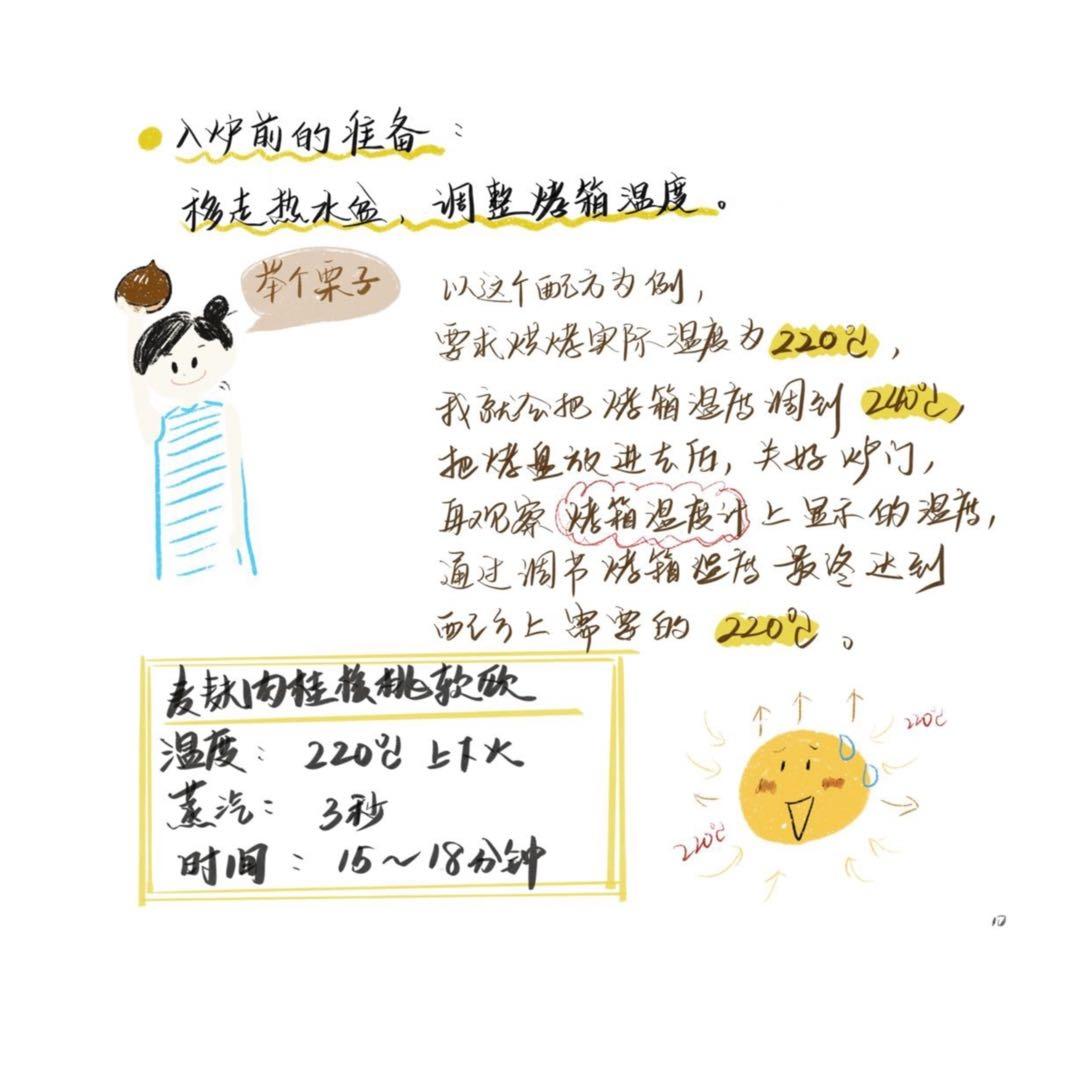 入炉前的准备：
移走热水盆，调整烤箱温度。
举个栗子
以这个配方为例，
要求烘烤实际温度为220℃，
我就会把烤箱温度调到240℃，
把烤盘放进去后，关好炉门，
再观察烤箱温度计上显示的温度，
通过调节烤箱温度最终达到
配方上需要的220℃。
麦麸肉桂核桃软欧
温度：220℃上下火
蒸汽：3秒
时间：15～18分钟
220℃
220℃